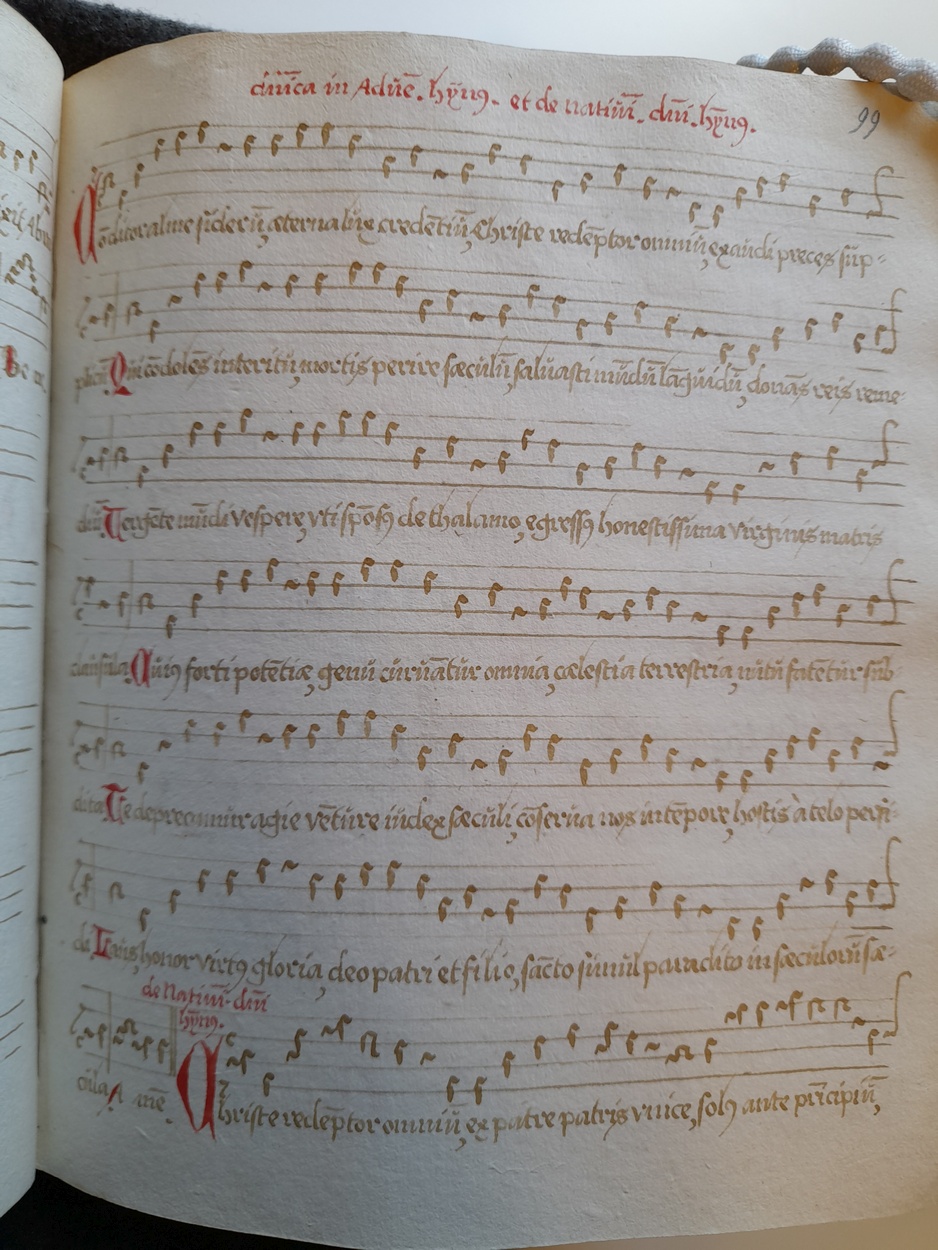 dm̄ica in Aduē. hȳnꝯ. et de natiuī. dm̄i. hȳnꝯ.
99
Cōditor alme siderū, æterna lux credētiū, Christe redēptor omniū, exaudi preces sup-
plicū Qui cōdolēs interitu, mortis perire sæculū, saluasti mūdū lāguidū, donās reis reme-
diū Vergēte mūdi vespere, vti spōsꝯ de thalamo, egressꝯ honestissima virginis matris
clausula Cuiꝯ forti potētiæ, genu curuātur omnia, cælestia terrestria, nutu fatētur sub-
dita Te deprecamur agie vēture iudex sæculi, cōserua nos in tēpore, hostis à telo perfi-
di Laus, honor virtꝯ gloria, deo patri et filio, sācto simul paraclito in sæculorū sæ-
de Natiui. dm̄i
hȳnꝯ.
cula Amē.
Christe redēptor omniū, ex patre patris vnice, solꝯ ante prīcipiū,